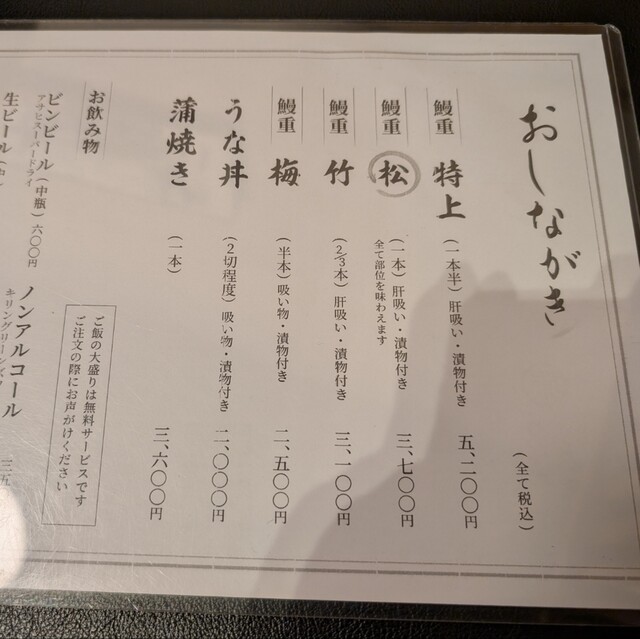 おしながき
(全て税込)
鰻重 特上 (一本半)肝吸い・漬物付き 五、二〇〇円
鰻重 松 (一本)肝吸い・漬物付き 三、七〇〇円
全て部位を味わえます
鰻重 竹 (2/3本)肝吸い・漬物付き 三、一〇〇円
鰻重 梅 (半本)吸い物・漬物付き 二、五〇〇円
うな丼 (2切程度)吸い物・漬物付き 二、〇〇〇円
蒲焼き (一本) 三、六〇〇円
ご飯の大盛りは無料サービスです
ご注文の際にお声がけください
お飲み物
ビンビール(中瓶) 六〇〇円
アサヒスーパードライ
ノンアルコール
生ビール